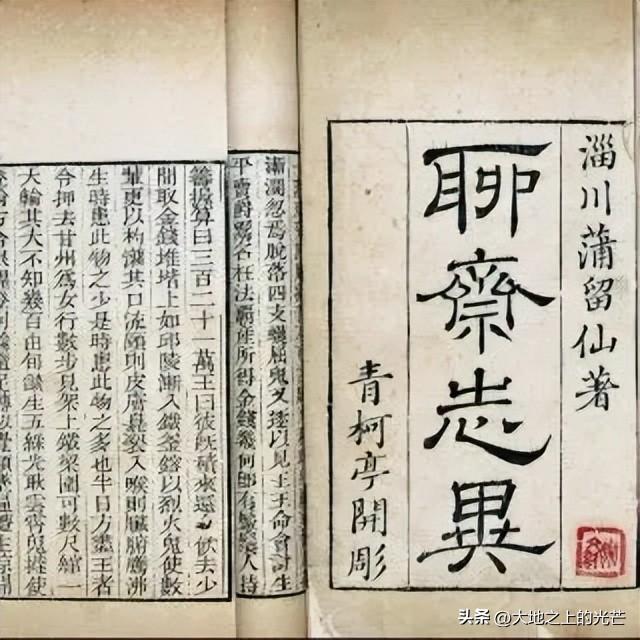 淄川蒲留仙著
聊齋志異
青柯亭開彫
漸濶忽焉脫落四支蠖屈鬼又逐以見王王命會計生
平賣爵鬻名枉法霸産所得金錢幾何即有鬡鬚人持
籌握算曰三百二十一萬王曰彼旣積來還令飲去少
間取金錢堆堦上如邱陵漸入鐵釜鎔以烈火鬼使數
輩更以杓灌其口流頤則皮膚臭裂入喉則臟腑騰沸
生時患此物之少是時患此物之多也半日方盡王者
令押去甘州爲女行數步見架上鐵梁圍可數尺綰一
火輪其大不知幾百由旬燄生五綵光耿雲霄鬼撻使
头条 @大地之上的光芒